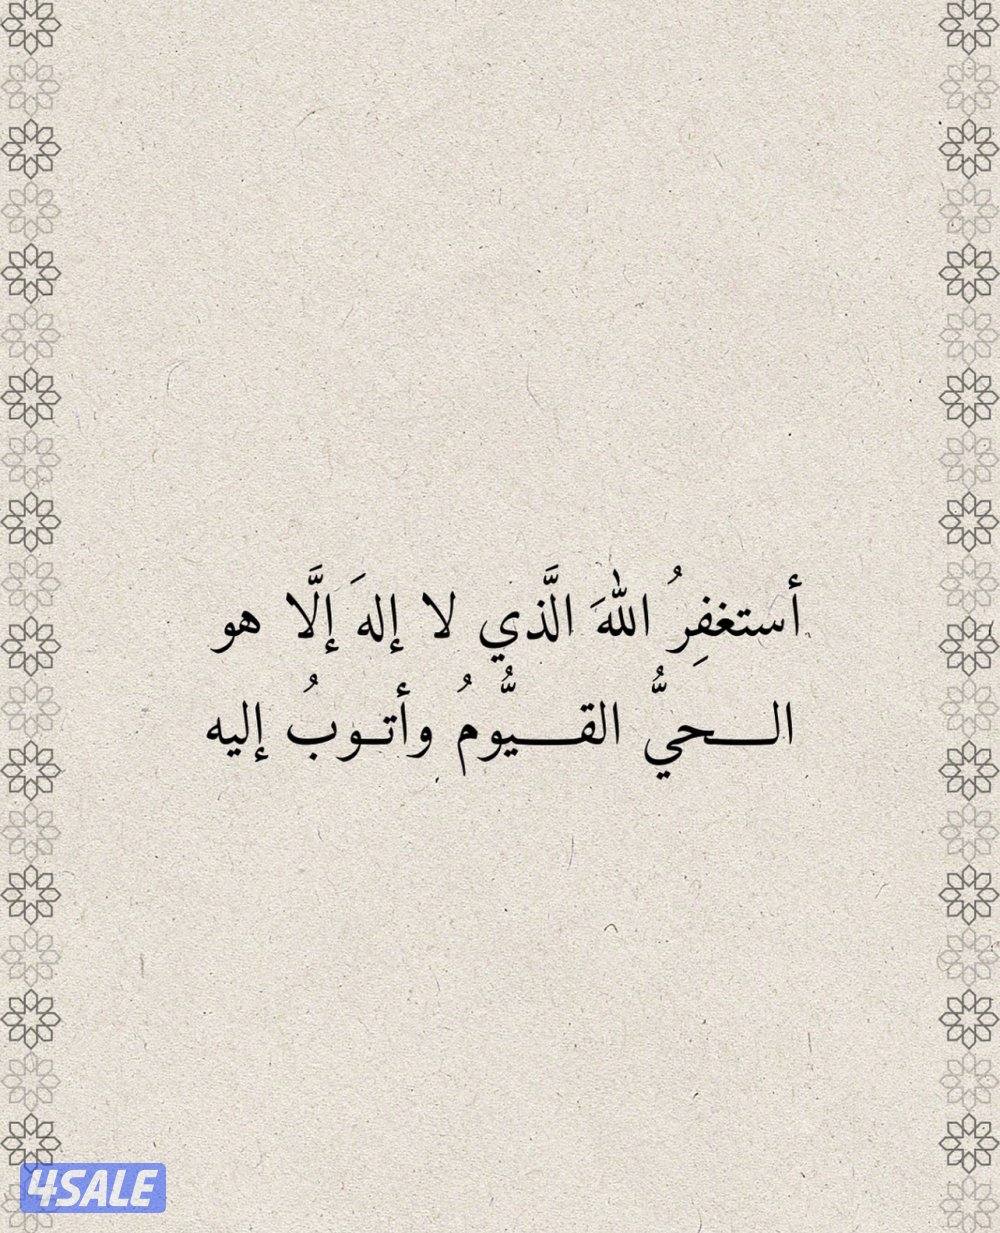 أستغفِرُ اللهَ الَّذي لا إلهَ إلَّا هو
الـــحيُّ القـــيُّومُ وأتـوبُ إليه
4SALE